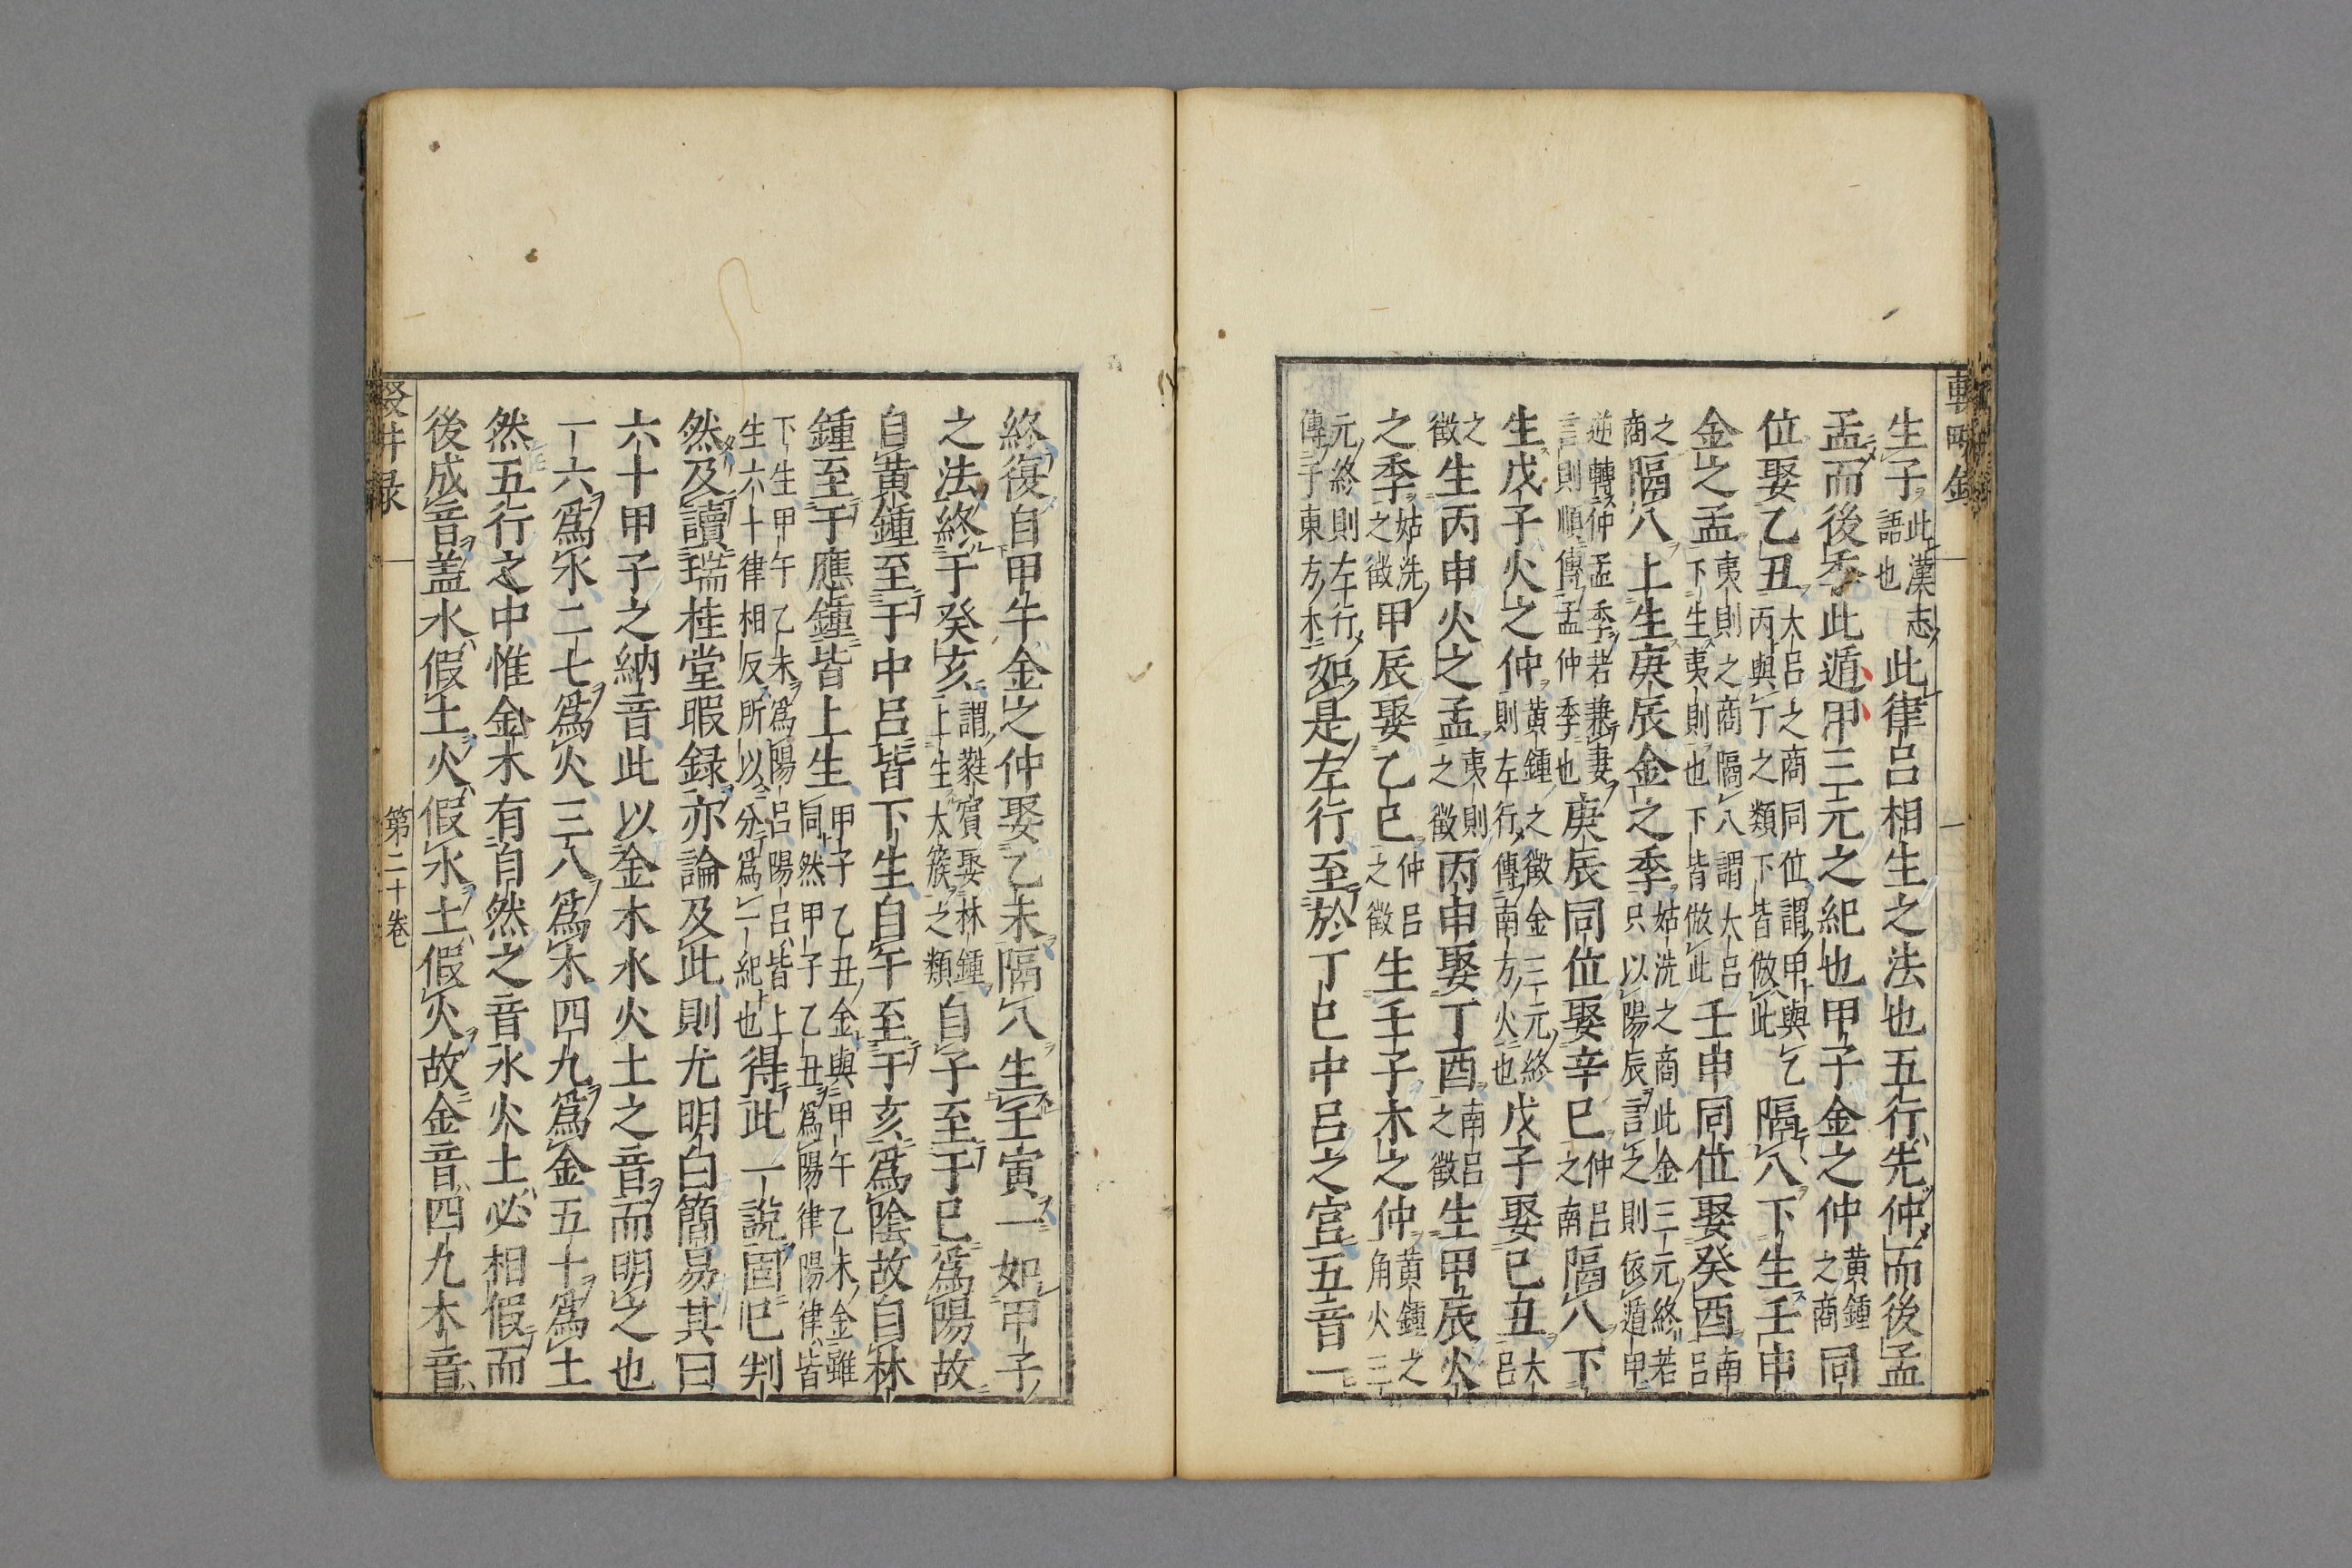 生子此漢志語也此律呂相生之法也五行先仲而後孟
孟而後季此遁甲三元之紀也甲子金之仲黄鍾之商同
位娶乙丑大呂之商同位謂甲與乙丙與丁之類下皆倣此隔八下生壬申
金之孟夷則之商隔八謂大呂下生夷則也下皆倣此壬申同位娶癸酉南呂
之商隔八上生庚辰金之季姑洗之商此金三元終若只以陽辰言之則依遁甲
逆轉仲孟季若兼妻言則順傳孟仲季也庚辰同位娶辛巳仲呂之南隔八下
生戊子火之仲黄鍾之徵金三元終則左行傳南方火也戊子娶己丑大呂
之徵生丙申火之孟夷則之徵丙申娶丁酉南呂之徵生甲辰火
之季姑洗之徵甲辰娶乙巳仲呂之徵生壬子木之仲黄鍾之角火三
元終則左行傳于東方木如是左行至於丁巳中呂之宮五音一
終復自甲午金之仲娶乙未隔八生壬寅一如甲子
之法終于癸亥謂蕤賓娶林鍾上生太簇之類自子至于巳爲陽故
自黄鍾至于中呂皆下生自午至于亥爲陰故自林
鍾至于應鍾皆上生甲子乙丑金與甲午乙未金雖同然甲子乙丑爲陽律陽律皆
下生甲午乙未爲陽呂陽呂皆上生六十律相反所以分爲一紀也得此一說固已判
然及讀瑞桂堂暇録亦論及此則尤明白簡易其曰
六十甲子之納音此以金木水火土之音而明之也
一六爲水二七爲火三八爲木四九爲金五十爲土
然五行之中惟金木有自然之音水火土必相假而
後成音盖水假土火假水土假火故金音四九木音
第二十卷